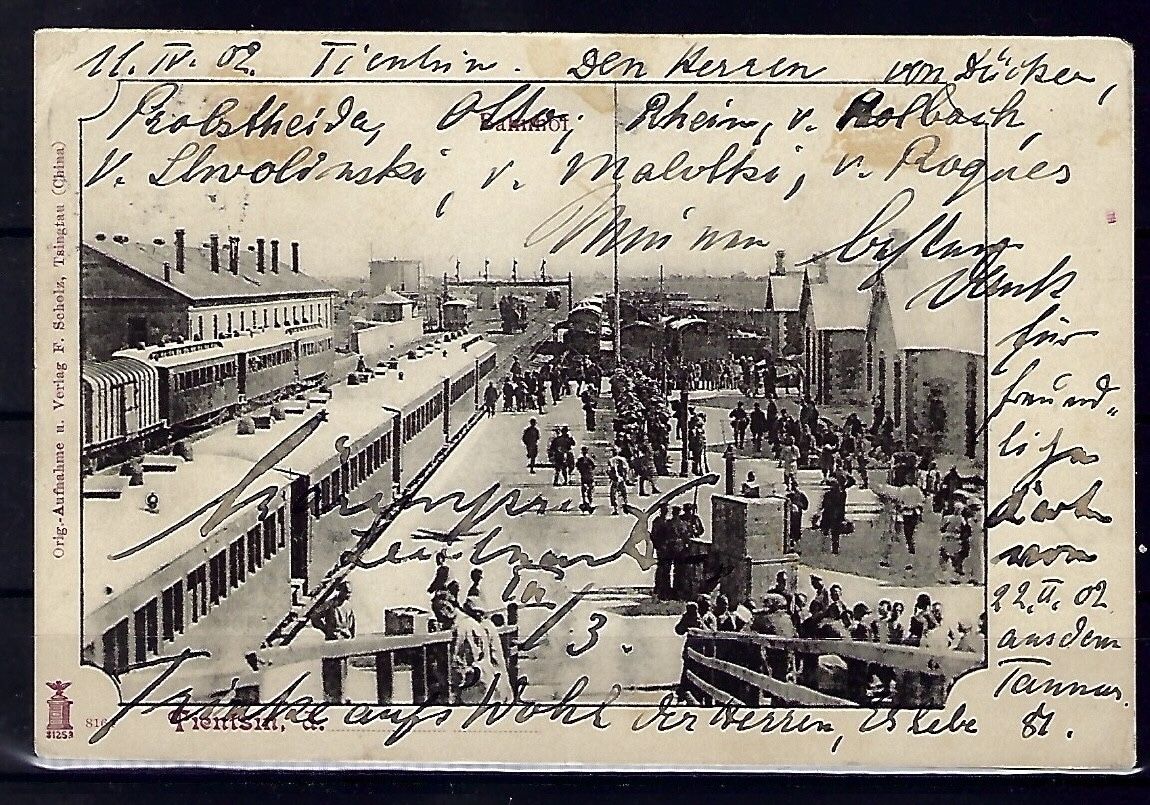 11. IV. 02. Tientsin. Den Herren von Dücker,
Probstheida, Otto, Rhein, v. Rorbach,
v. Slwolinski, v. Malotki, v. Rogues
Bahnhof.
Meinen besten
Dank
für
freund-
liche
Karte
vom
22. II. 02
aus dem
Taunus.
Leutnant
3.
Trinke aufs Wohl der Herren, Es lebe 81.
Tientsin, d.
Orig.-Aufnahme u. Verlag F. Scholz, Tsingtau (China)
31253